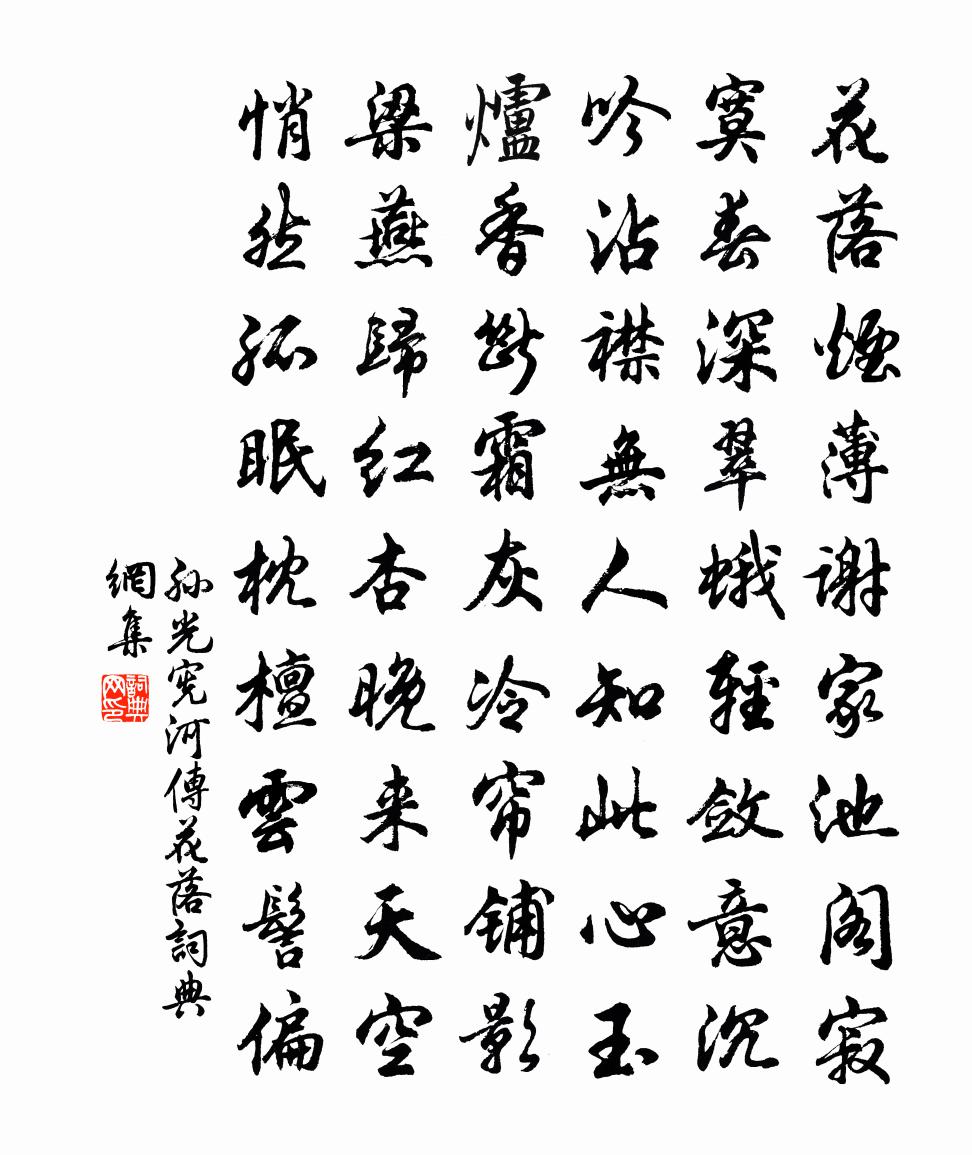 花落煙薄謝家池阁寂
寞春深翠蛾輕斂意沉
吟沾襟無人知此心玉
爐香斷霜灰冷帘铺影
梁燕歸红杏晚来天空
悄然孤眠枕檀雲髻偏
孫光宪河傳花落詞典
網集
詞典网印